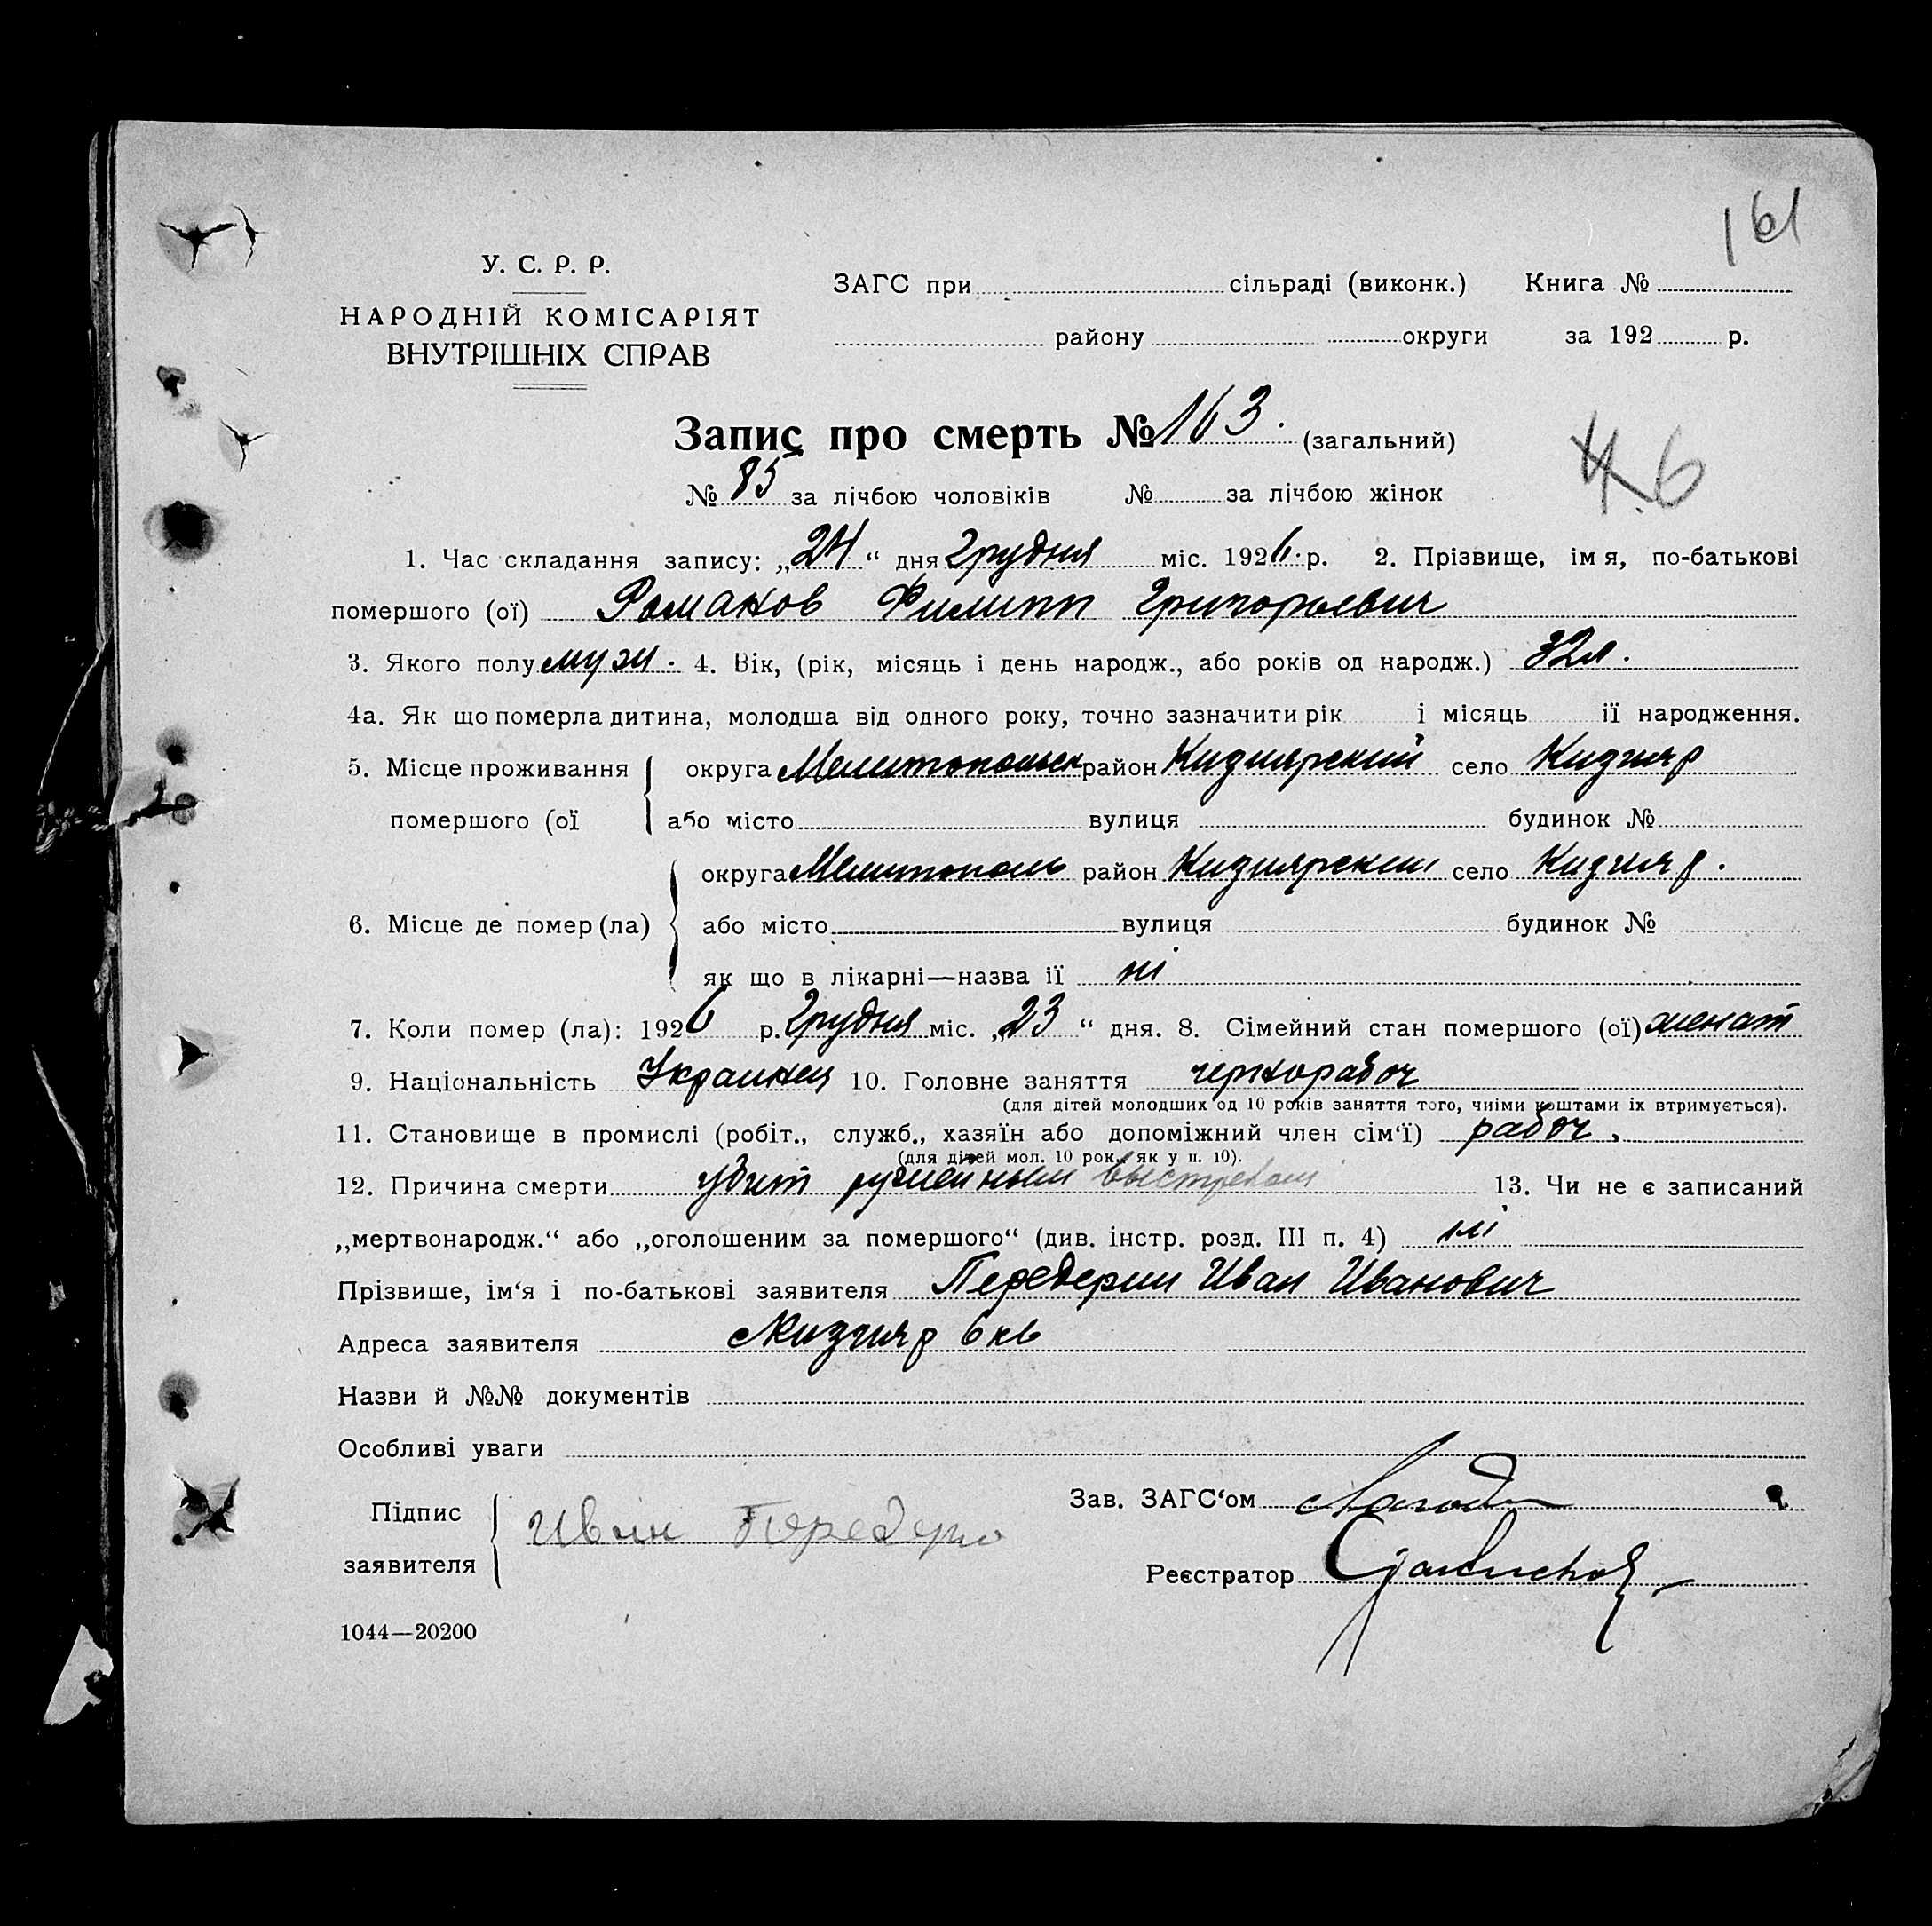 161
У. С. Р. Р.
НАРОДНІЙ КОМІСАРІЯТ
ВНУТРІШНІХ СПРАВ
ЗАГС при сільраді (виконк.) Книга №
району округи за 192 р.
Запис про смерть № 163. (загальний)
№ 85 за лічбою чоловіків № за лічбою жінок
6
1. Час складання запису: „24“ дня Грудня міс. 1926 р. 2. Прізвище, імя, по-батькові
помершого (ої) Романов Филипп Григорьевич
3. Якого полу муж. 4. Вік, (рік, місяць і день народж., або років од народж.) 32л.
4а. Як що померла дитина, молодша від одного року, точно зазначити рік і місяць її народження.
5. Місце проживання округа Мелитопольск район Кизиярский село Кизияр
помершого (ої або місто вулиця будинок №
округа Мелитополь район Кизиярский село Кизияр.
6. Місце де помер (ла) або місто вулиця будинок №
як що в лікарні—назва її ні
7. Коли помер (ла): 1926 р. Грудня міс. „23“ дня. 8. Сімейний стан помершого (ої) женат
9. Національність Украинец 10. Головне заняття чернорабоч
(для дітей молодших од 10 років заняття того, чиїми коштами їх втримується).
11. Становище в промислі (робіт., служб., хазяїн або допоміжний член сім‘ї) рабоч.
(для дітей мол. 10 рок., як у п. 10).
12. Причина смерти убит ружейным выстрелом 13. Чи не є записаний
„мертвонародж.“ або „оголошеним за помершого“ (див. інстр. розд. III п. 4) ні
Прізвише, ім‘я і по-батькові заявителя Передерий Иван Иванович
Адреса заявителя с Кизияр 6 кв
Назви й №№ документів
Особливі уваги
Підпис
заявителя Иван Передерио
Зав. ЗАГС‘ом
Реєстратор
1044—20200